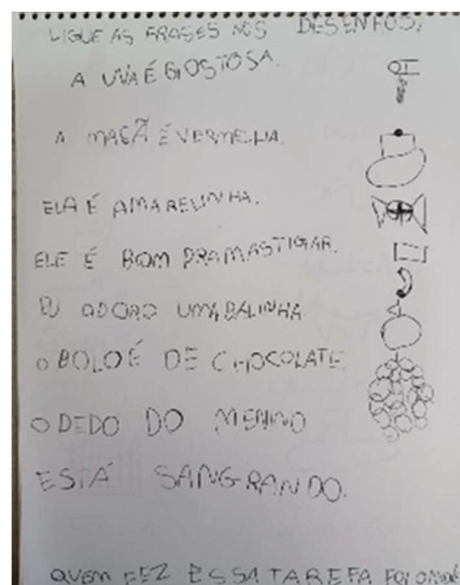 LIGUE AS FRASES NOS DESENHOS.
A UVA É GOSTOSA.
A MAÇÃ É VERMELHA.
ELA É AMARELINHA.
ELE É BOM PRA MASTIGAR.
EU ADORO UMA BALINHA.
O BOLO É DE CHOCOLATE.
O DEDO DO MENINO
ESTÁ SANGRANDO.
QUEM FEZ ESSA TAREFA FOI